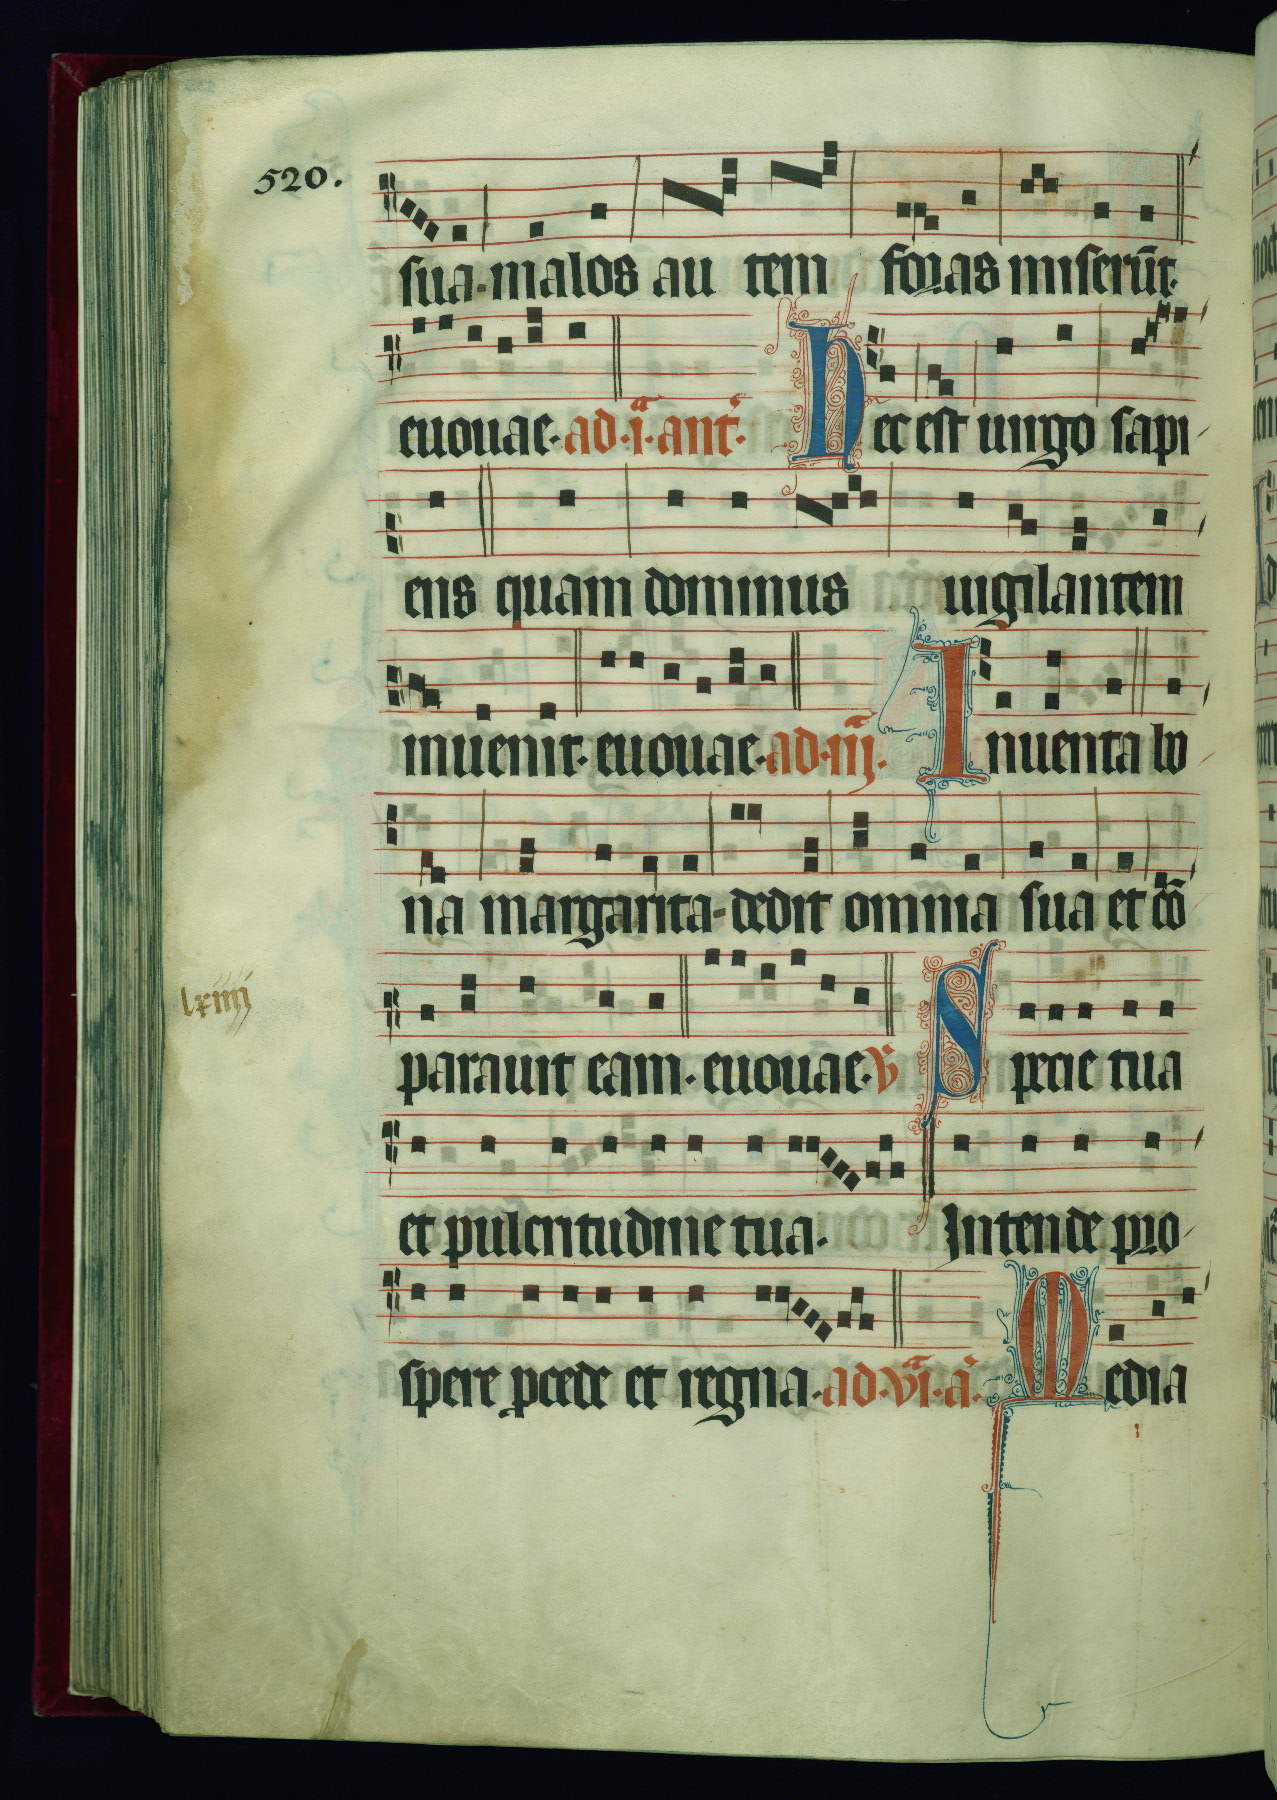 520.
sua. malos au tem foras miserūt.
euouae. ad .i.ͣ ant.̓ hec est uirgo sapi
ens quam dominus uigilantem
inuenit. euouae. ad .iij. Inuenta bo
na margarita. dedit omnia sua et cō
lxiiij
parauit eam. euouae. v̄ Specie tua
et pulcritudine tua. Intende pro
spere ꝓcede et regna. ad .vi.ͣ a.̓ Media